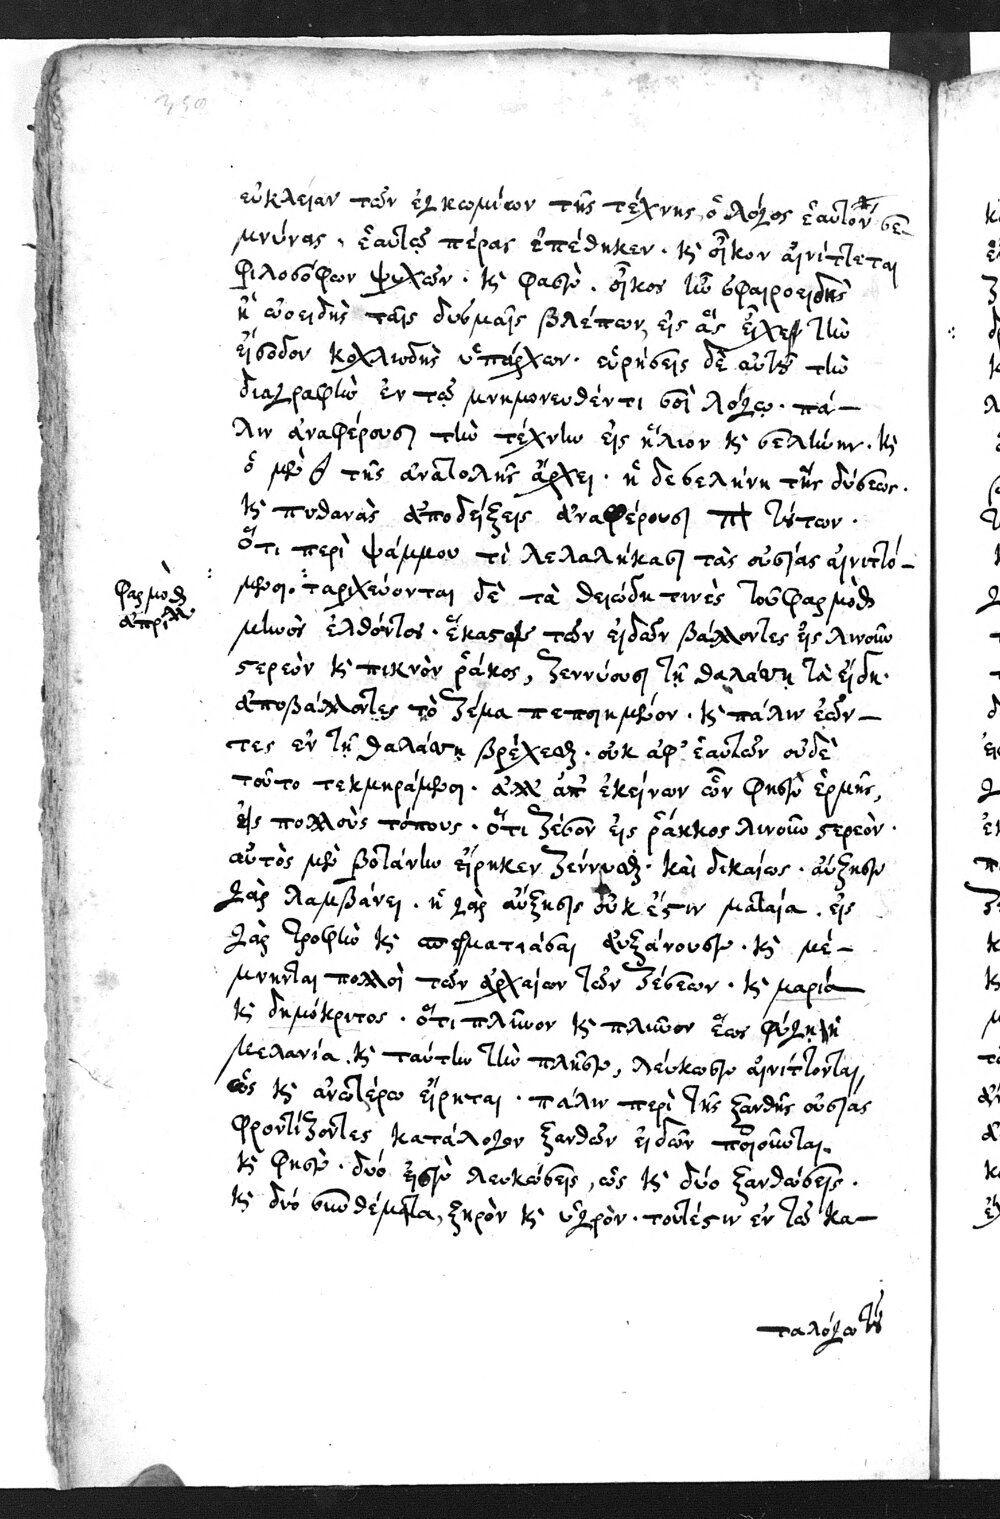 350
εὐκλείαν τῶν ἐγκωμίων τῆς τέχνης ὁ λόγος ἑαυτὸν σε-
μνύνας, ἑαυτῷ πέρας ἐπέθηκεν. κ̀ οἶκον αἰνίττεται
φιλοσόφων ψυχῶν. κ̀ φασὶν. οἶκος ἦν σφαιροειδὴς
ἢ ὠοειδὴς ταῖς δυσμαῖς βλέπων, εἰς ἃς εἶχεν τὴν
εἴσοδον κοχλιωδὴς ὑπάρχων. εὑρήσεις δὲ αὐτοῦ τὴν
διαγραφὴν ἐν τῷ μνημονευθέντι σοὶ λόγῳ. πά-
λιν ἀναφέρουσι τὴν τέχνην εἰς ἥλιον κ̀ σελήνην. κ̀
ὁ μὲν τῆς ἀνατολῆς ἄρχει. ἡ δὲ σελήνη τῆς δύσεως.
κ̀ πιθανὰς ἀποδείξεις ἀναφέρουσι τούτων.
Ὅτι περὶ ψάμμου τὶ λελαλήκασι τὰς οὐσίας αἰνιττό-
μενοι. ταριχεύονται δὲ τὰ θειώδη τινὲς τοῦ φαρμοὺθ
φαρμοὺθ
ἀπρίλλ.
μηνὸς ἐλθόντος. ἕκαστον τῶν εἰδῶν βάλλοντες εἰς λινοῦν
στερεὸν κ̀ πικνὸν ῥάκος, ζεννύουσι τῇ θαλάσσῃ τὰ εἴδη.
ἀποβάλλοντες τὸ ζέμα πεποιημένον. κ̀ πάλιν ἐῶν-
τες ἐν τῇ θαλάσσῃ βρέχεσθαι. οὐκ ἀφ' ἑαυτῶν οὐδὲ
τοῦτο τεκμηράμενοι. ἀλλ' ἀπ' ἐκείνων ὧν φησὶν ἑρμῆς,
εἰς πολλοὺς τόπους. ὅτι ζέσον εἰς ῥάκκος λινοῦν στερεὸν.
αὐτὸς μὲν βοτάνην εἴρηκεν ζέννυσθαι. καὶ δικαίως. αὔξησιν
γὰρ λαμβάνει. ἡ γὰρ αὔξησις οὐκ ἔστιν ματαία. εἰς
γὰρ τροφὴν κ̀ σπερματιάσαι αὐξάνουσιν. κ̀ μέ-
μνηνται πολλοὶ τῶν ἀρχαίων τῶν ζέσεων. κ̀ μαρία
κ̀ δημόκριτος. ὅτι πλῦνον κ̀ πλῦνον ἕως φύγῃ ἡ
μελανία. κ̀ ταύτην τὴν πλῆσιν, λεύκωσιν αἰνίττονται,
ὡς κ̀ ἀνωτέρω εἴρηται. πάλιν περὶ τῆς ξανθῆς οὐσίας
φροντίζοντες κατάλογον ξανθῶν εἰδῶν ποιοῦνται.
κ̀ φησὶν. δύο εἰσὶν λευκώσεις, ὡς κ̀ δύο ξανθώσεις.
κ̀ δύο συνθέματα, ξηρὸν κ̀ ὑγρὸν. τουτέστιν ἐν τῷ κα-
ταλόγω τοῦ